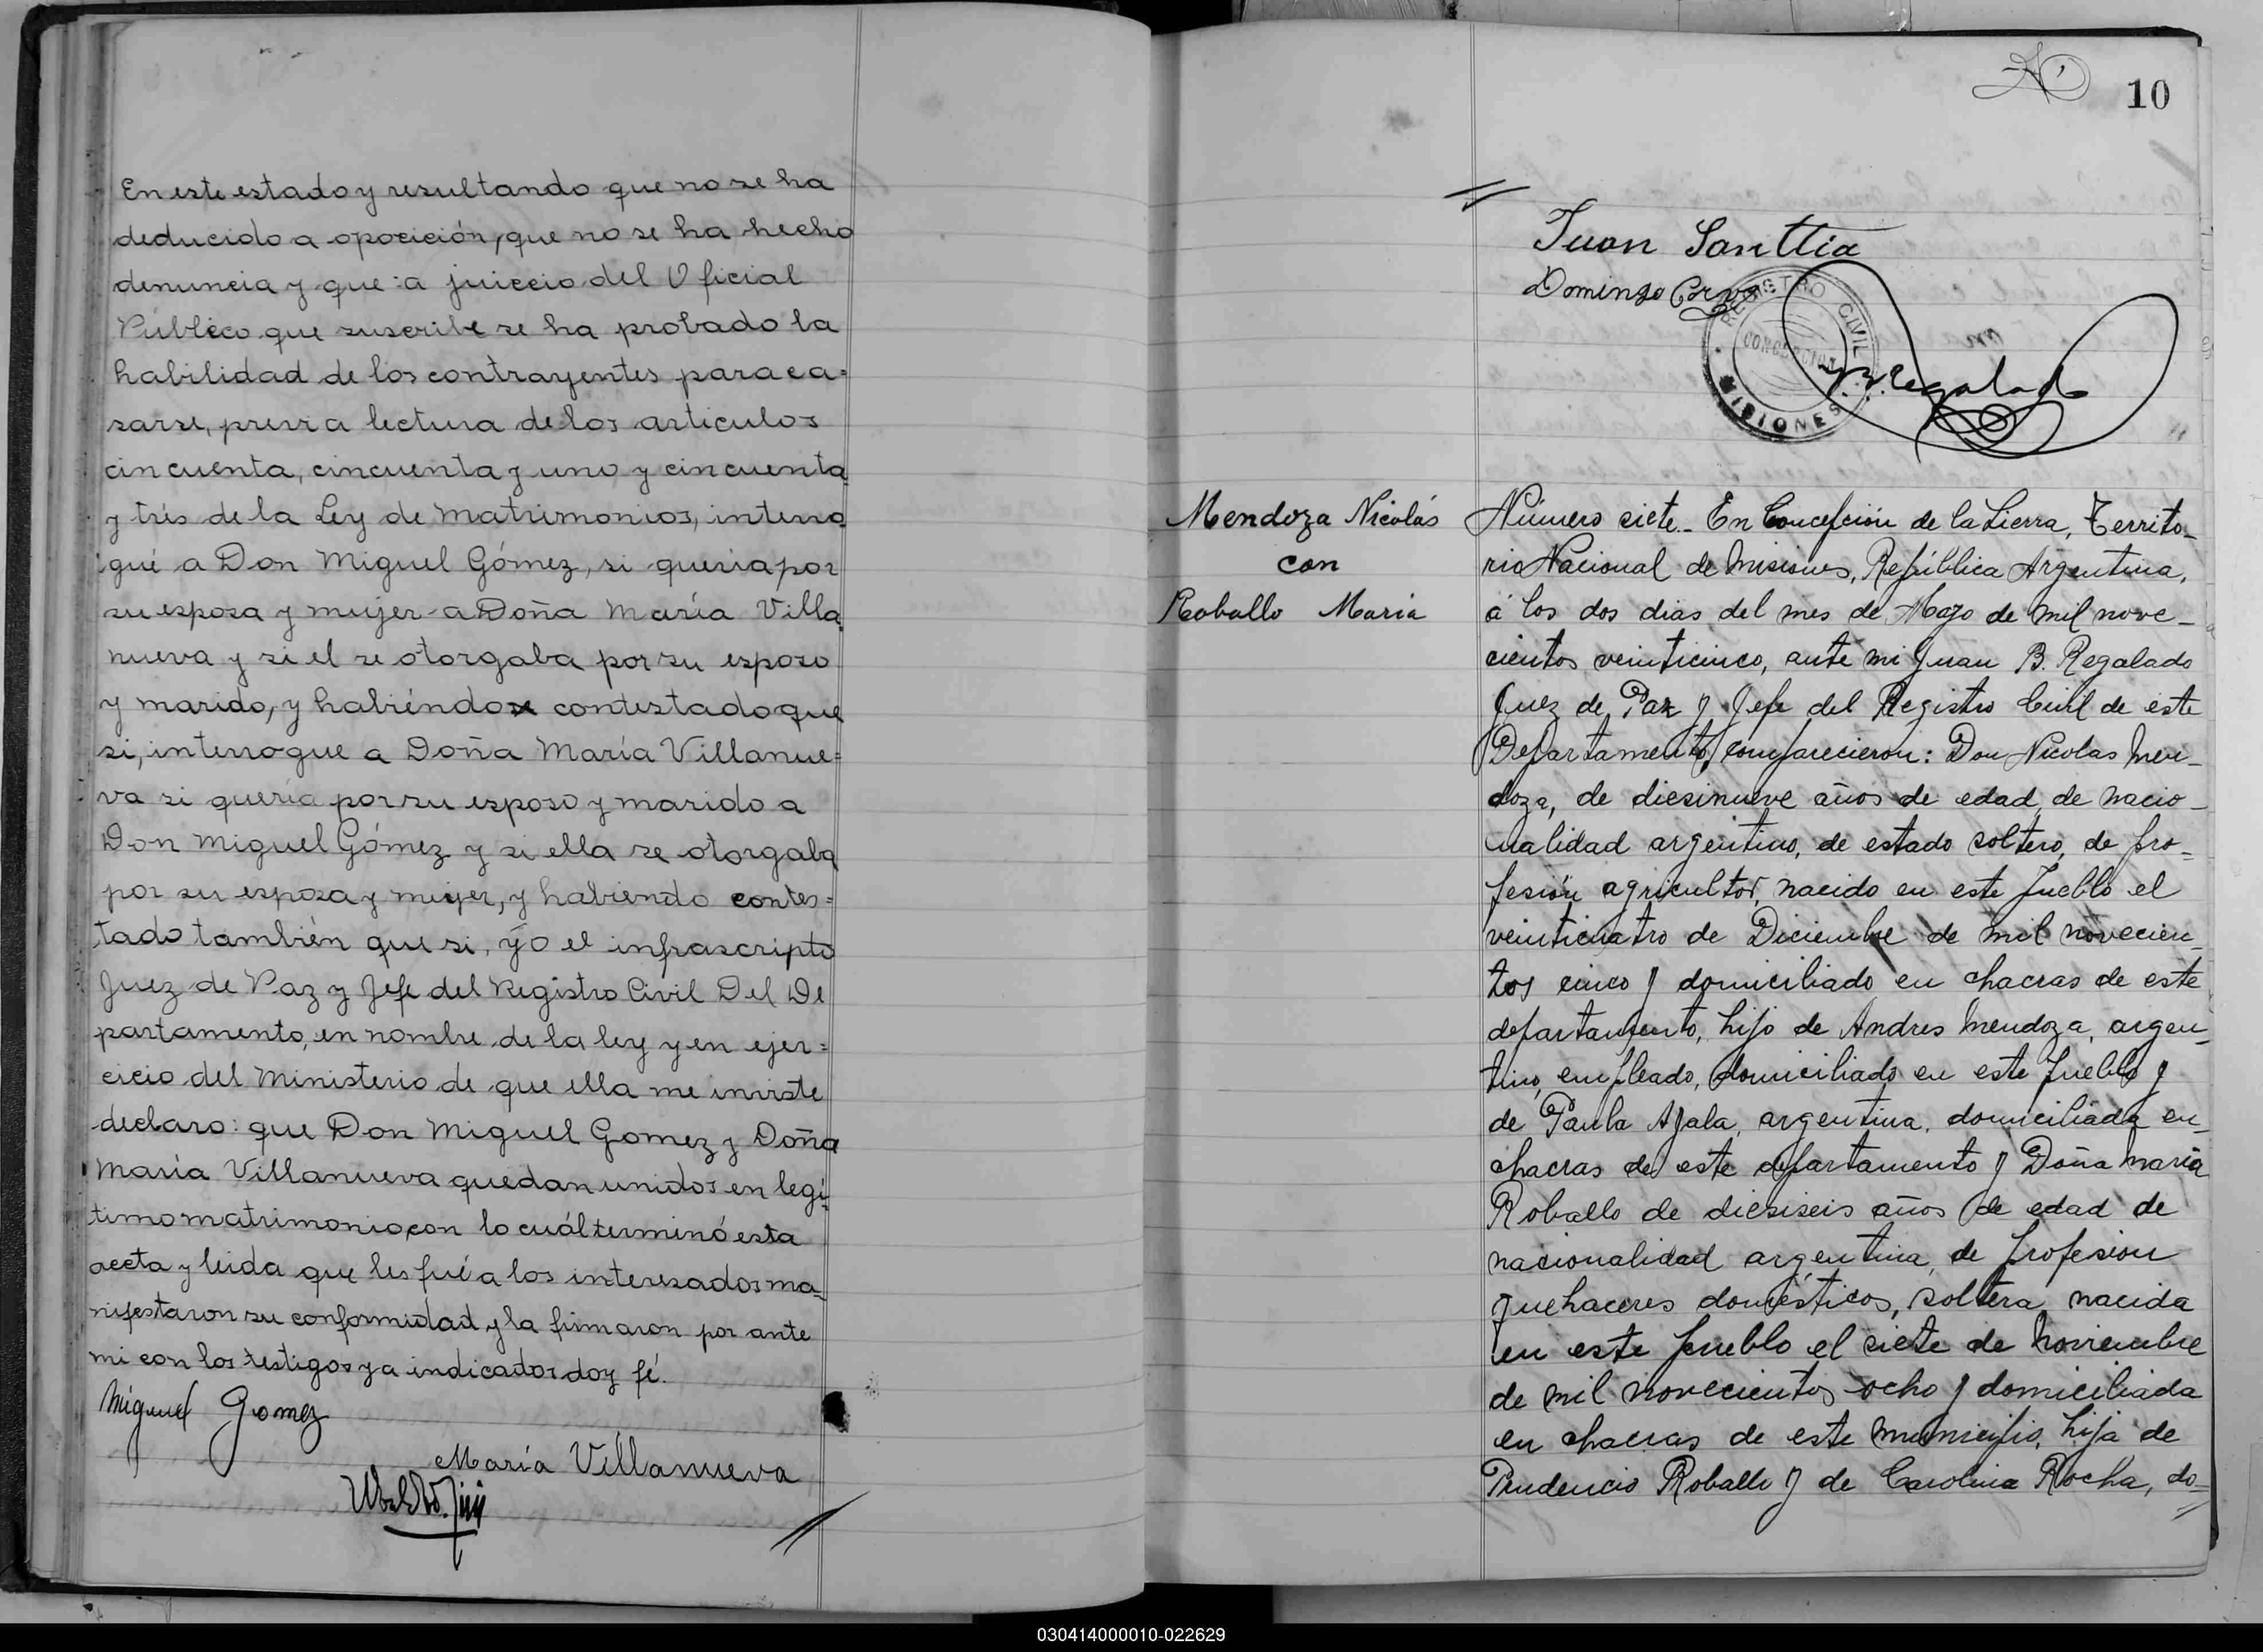 En este estado y resultando que no se ha
deducido a oposición, que no se ha hecho
denuncia y que a juiccio del Oficial
Público que suscribe se ha probado la
habilidad de los contrayentes para ca=
sarse, previa lectura de los articulos
cincuenta, cincuenta y uno y cincuenta
y trés de la Ley de Matrimonios, interro
gué a Don Miguel Gómez, si quería por
su esposa y mujer a Doña María Villa
nueva y si el se otorgaba por su esposo
y marido, y habiéndose contestado que
si, interrogue a Doña María Villanue=
va si quería por su esposo y marido a
Don Miguel Gómez y si ella se otorgaba
por su esposa y mujer, y habiendo contes=
tado también que si, yo el infrascripto
Juez de Paz y Jefe del Registro Civil Del De
partamento, en nombre de la ley y en ejer=
cicio del Ministerio de que ella me inviste
declaro: que Don Miguel Gomez y Doña
María Villanueva quedan unidos en legí
timo matrimonio, con lo cuál terminó esta
acta y leida que les fué a los interesados ma=
nifestaron su conformidad y la firmaron por ante
mi con los testigos ya indicados doy fé.
Miguel Gomez
María Villanueva
10
Juan Santtia
Domingo
REGISTRO CIVIL
CONCEPCION
MISIONES
Regalado
Mendoza Nicolás
con
Roballo María
Número siete.- En Concepción de la Sierra, Territo-
rio Nacional de Misiones, República Argentina,
á los dos dias del mes de Mayo de mil nove-
cientos veinticinco, ante mi Juan B. Regalado
Juez de Paz y Jefe del Registro Civil de este
Departamento, comparecieron: Don Nicolas Men-
doza, de diesinueve años de edad, de nacio-
nalidad argentino, de estado soltero, de pro-
fesión agricultor, nacido en este pueblo el
veinticuatro de Diciembre de mil novecien-
tos cinco y domiciliado en chacras de este
departamento, hijo de Andres Mendoza, argen-
tino, empleado, domiciliado en este pueblo y
de Paula Ayala, argentina, domiciliada en
chacras de este departamento y Doña María
Roballo de diesiseis años de edad de
nacionalidad argentina, de profesion
quehaceres domésticos, soltera, nacida
en este pueblo el siete de noviembre
de mil novecientos ocho y domiciliada
en chacras de este municipio, hija de
Prudencio Roballo y de Carolina Rocha, do=
030414000010-022629